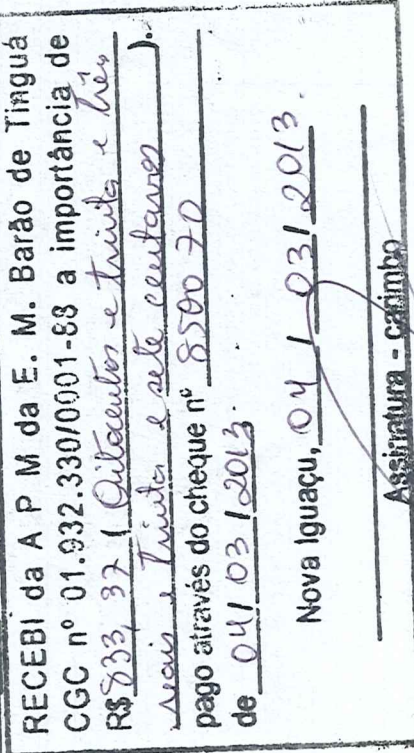 RECEBI da A P M da E. M. Barão de Tinguá
CGC nº 01.932.330/0001-88 a importância de
R$ 833,37 ( Oitocentos e trinta e três
reais e Trinta e sete centavos ).
pago através do cheque nº 850070
de 04/03/2013.
Nova Iguaçu, 04/03/2013.
Assinatura - carimbo